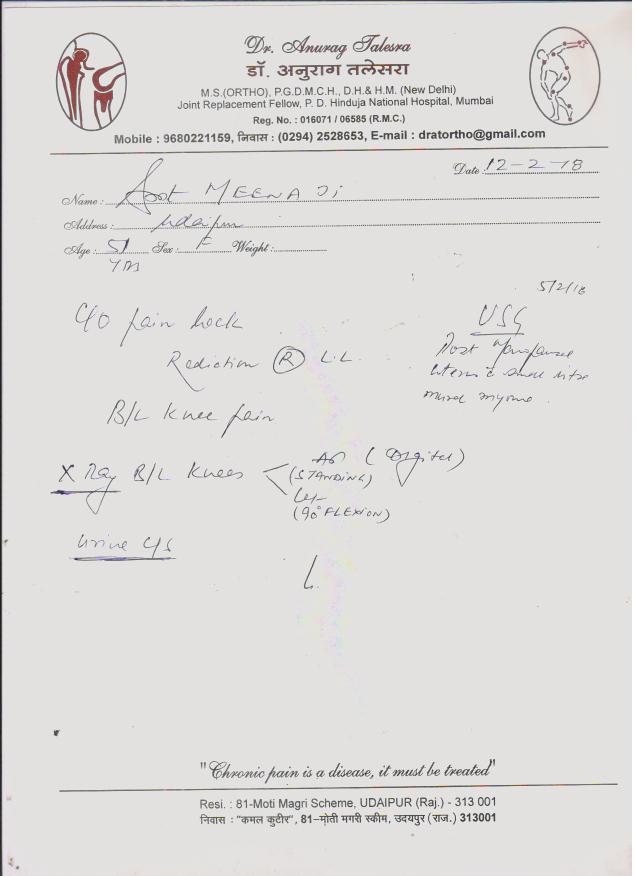 Dr. Anurag Talesra
डॉ. अनुराग तलेसरा
M.S.(ORTHO), P.G.D.M.C.H., D.H.& H.M. (New Delhi)
Joint Replacement Fellow, P. D. Hinduja National Hospital, Mumbai
Reg. No. : 016071 / 06585 (R.M.C.)
Mobile : 9680221159, निवास : (0294) 2528653, E-mail : dratortho@gmail.com
Date 12-2-18
Name : MEENA Ji
Address : Udaipur
Age : 51 Sex : F Weight :
yrs
5/2/18
C/O pain back
Radiation R L.L.
USG
Post Menopausal
uterus c small intra
mural myoma.
B/L Knee pain
X Ray B/L Knees AP (Digital)
(STANDING)
(90° FLEXION)
Urine C/S
"Chronic pain is a disease, it must be treated"
Resi. : 81-Moti Magri Scheme, UDAIPUR (Raj.) - 313 001
निवास : "कमल कुटीर", 81–मोती मगरी स्कीम, उदयपुर (राज.) 313001